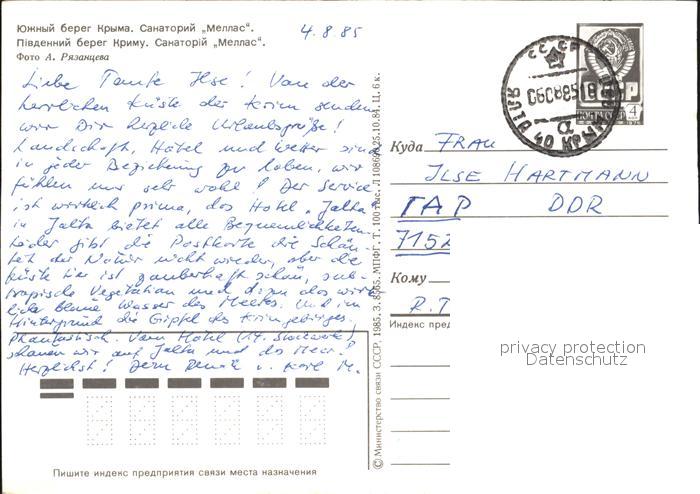 Южный берег Крыма. Санаторий „Меллас“.
Південний берег Криму. Санаторій „Меллас“.
Фото А. Рязанцева
4.8.85
Liebe Tante Ilse! Von der
herrlichen Küste der Krim senden
wir Dir herzliche Urlaubsgrüße!
Landschaft, Hotel und Wetter sind
in jeder Beziehung zu loben, wir
fühlen uns sehr wohl! Der Service
ist wirklich prima, das Hotel „Jalta“
in Jalta bietet alle Bequemlichkeiten.
Leider gibt die Postkarte die Schön-
heit der Natur nicht wieder, aber die
Küste hier ist zauberhaft schön, sub-
tropische Vegetation und dazu das
blaue Wasser des Meeres. Und im
Hintergrund die Gipfel des Krimgebirges.
Phantastisch. Vom Hotel (14. Stockwerk)
schauen wir auf Jalta und das Meer!
Herzlichst! Deine u. Karl M.
Пишите индекс предприятия связи места назначения
© Министерство связи СССР, 1985. З. 8565. МПФГ. Т. 100 тыс. 25.10.84. Ц. 6 к.
СССР
ЯЛТА 40 КРЫМ
а
4
Куда Frau
Ilse Hartmann
ГДР DDR
7152
Кому
R.T
Индекс пред
privacy protection
Datenschutz